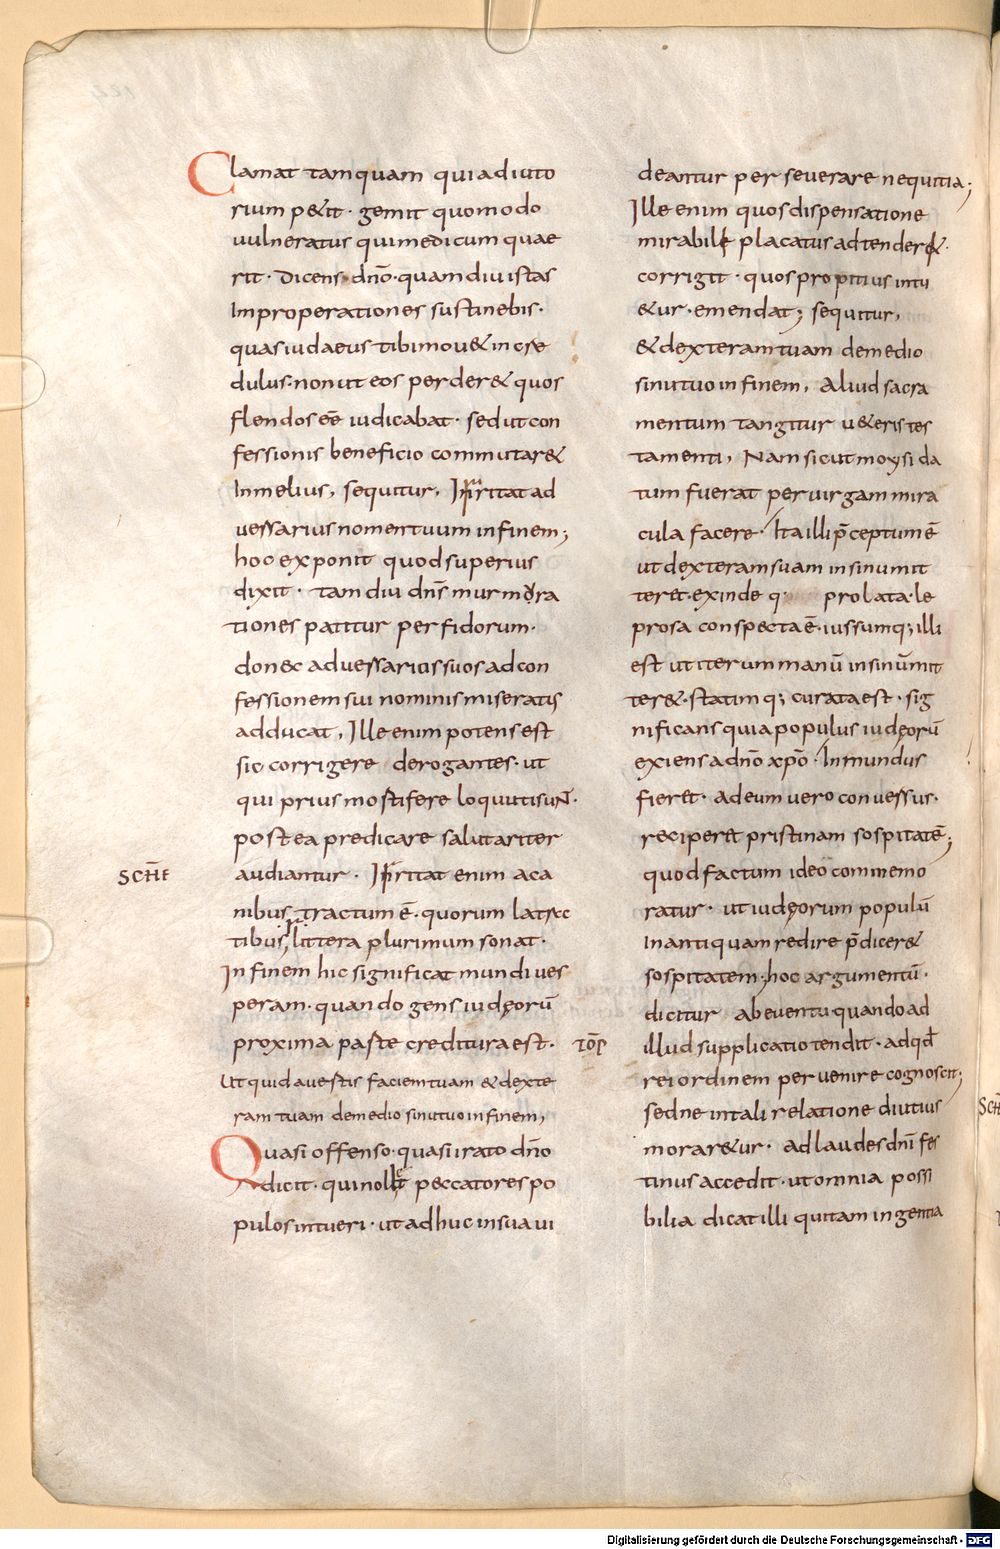 Clamat tamquam qui adiuto
rium p&it · gemit quomodo
uulneratus qui medicum quae
rit · Dicens dnō · quam diu istas
Improperationes sustinebis ·
quas iudaeus tibi mou& incre
dulus · non ut eos perder& quos
flendos eē iudicabat · sed ut con
fessionis beneficio commutar&
In melius, sequitur, Irritat ad
uersarius nomen tuum in finem;
hoc exponit quod superius
dixit · tam diu dn̄s murmora
tiones patitur perfidorum ·
donec aduersariis suos ad con
fessionem sui nominis miseratis
adducat, Ille enim potens est
sic corrigere derogantes · ut
qui prius mostifere locuti sunt ·
postea predicare salutariter
audiantur · Irritat enim a ca
SCHE
nibus tractum ē · quorum latrac
tibus littera plurimum sonat ·
In finem hic significat mundi ues
peram · quando gens iudęorū
proxima paste creditura est ·
Ut quid auestis faciem tuam & dexte
ram tuam de medio sinu tuo in finem,
Quasi offenso · quasi irato dnō
dicit · qui nollet peccatores po
pulos intueri · ut adhuc in sua ui
deantur perseuerare nequitia;
Ille enim quos dispensatione
mirabile placatus adtender& ·
corrigit · quos propitius intu
&ur · emendat; sequitur,
& dexteram tuam de medio
sinu tuo in finem, Aliud sacra
mentum tangitur u&eris tes
tamenti, Nam sicut moysi da
tum fuerat per uirgam mira
cula facere · Ita illi p̄ceptum ē
ut dexteram suam in sinum it
teret · exinde q · prolata · le
prosa conspecta ē · iussumq; illi
est ut iterum manū in sinūmit
ter& · statimq; curata est · sig
nificans quia populus iudęorū
exiens a dnō xpō · Inmundus
fieret · ad eum uero conuessus ·
reciperet pristinam sospitatē;
quod factum ideo commemo
ratur · ut iudęorum populū
In antiquam redire p̄dicer&
sospitatem, hoc argumentū ·
dicitur ab euentu quando ad
TOP
illud supplicatio tendit · ad qđ
rei ordinem peruenire cognoscit;
sed ne in tali relatione diutius
morar&ur · ad laudes dnī fes
tinus accedit · ut omnia possi
bilia dicat illi qui tam ingentia
SCH